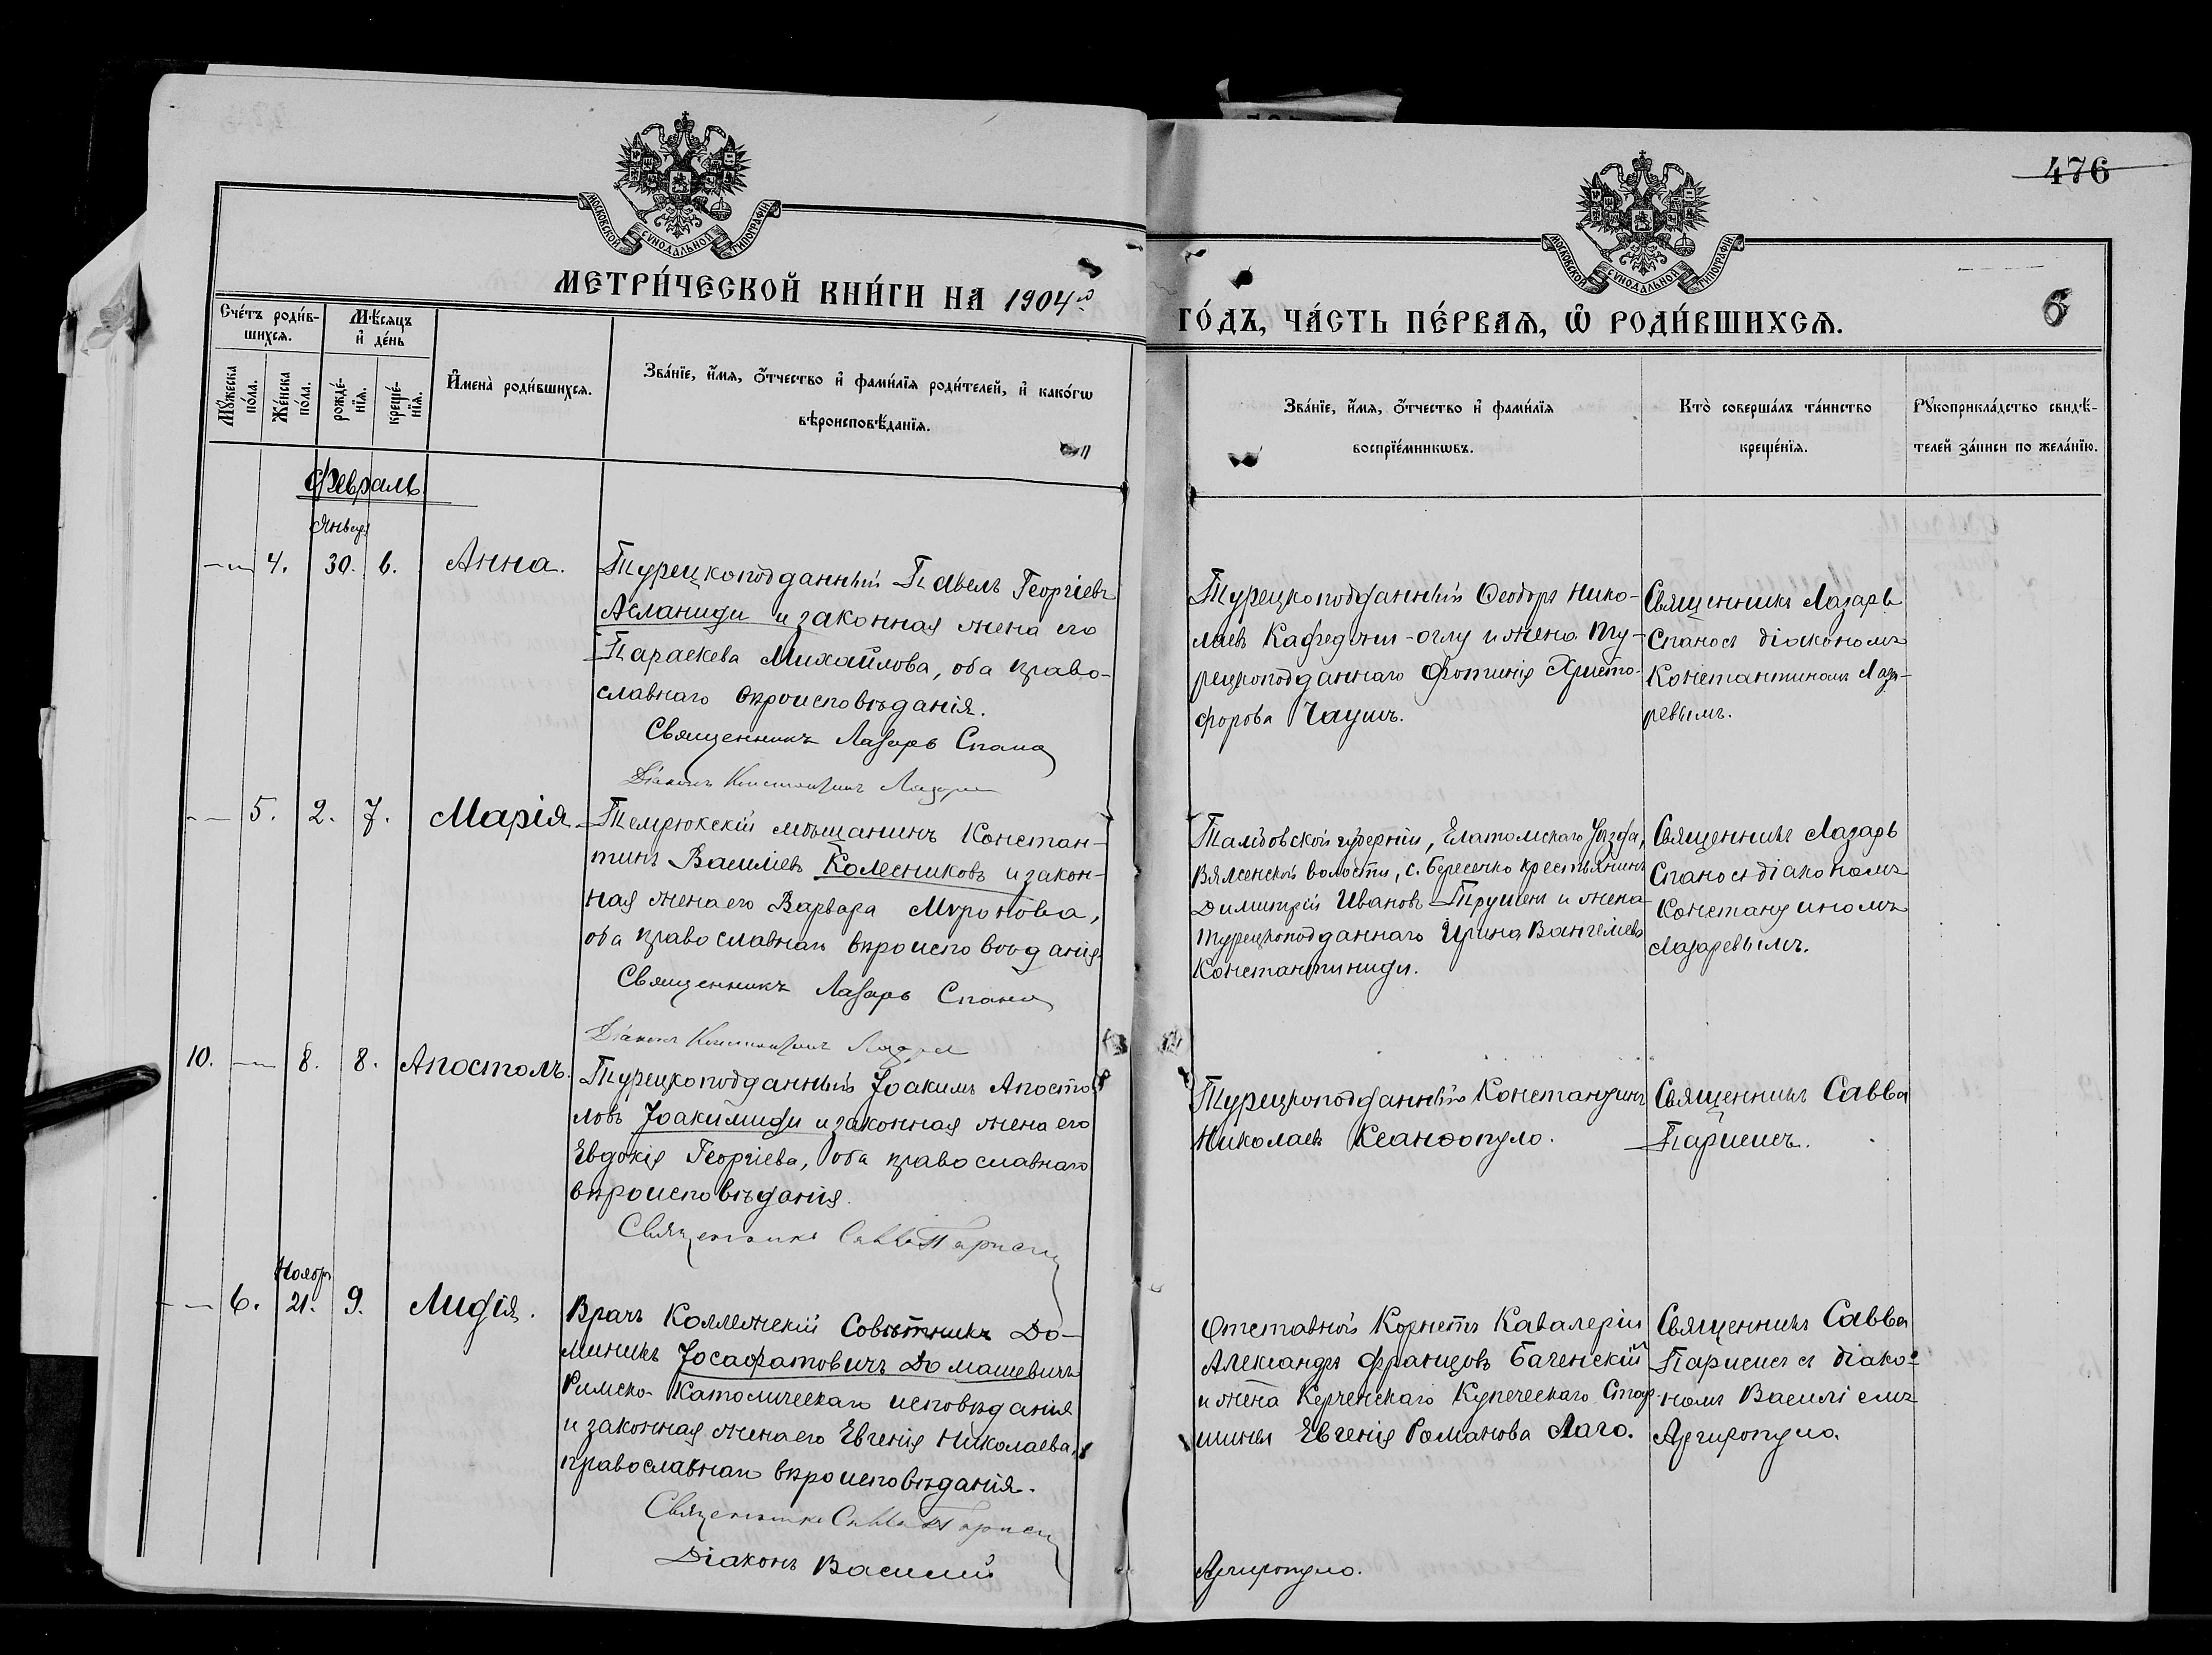 476
МОСКОВСКОЙ СУНОДАЛЬНОЙ ТИПОГРАФІИ
МОСКОВСКОЙ СУНОДАЛЬНОЙ ТИПОГРАФІИ
МЕТРИ́ЧЕСКОЙ КНИ́ГИ НА 1904й
ГО́ДЪ, ЧА́СТЬ ПЕ́РВАѦ, Ѽ РОДИ́ВШИХСѦ.
6
Сче́тъ роди́в-
шихсѧ.
Мѣ́сѧцъ
и҆ де́нь
Мꙋ́жеска
по́ла.
Же́нска
по́ла.
рожде́-
нїѧ.
креще́-
нїѧ.
И҆мена̀ роди́вшихсѧ.
Зва́нїе, и҆́мѧ, ѻ҆́тчество и҆ фами́лїѧ роди́телей, и҆ како́гѡ
вѣроисповѣ́данїѧ.
Зва́нїе, и҆́мѧ, ѻ҆́тчество и҆ фами́лїѧ
воспрїе́мникѡвъ.
Кто̀ соверша́лъ та́инство
креще́нїѧ.
Рꙋкоприкла́дство свидѣ́-
телей за́писи по жела́нїю.
Февраль
Январ.
4. 30. 6. Анна.
Турецкоподданный Павелъ Георгіевъ
Асланиди и законная жена его
Параскева Михайлова, оба право-
славнаго вѣроисповѣданія.
Священникъ Лазарь Спано
Діаконъ Константинъ Лазарев
Турецкоподданный Ѳеодоръ Нико-
лаевъ Кафеджи-оглу и жена ту-
рецкоподданнаго Фотинія Христо-
форова Чаушъ.
Священникъ Лазарь
Спано съ діакономъ
Константиномъ Лаза-
ревымъ.
5. 2. 7. Марія.
Темрюкскій мѣщанинъ Констан-
тинъ Василіевъ Колесниковъ и закон-
ная жена его Варвара Мѵронова,
оба православнаго вѣроисповѣданія.
Священникъ Лазарь Спано
Діаконъ Константинъ Лазарев
Тамбовской губерніи, Елатомскаго Уѣзда,
волости, с. крестьянинъ
Димитрій Ивановъ и жена
турецкоподданнаго Ирина Вангеліева
Константиниди.
Священникъ Лазарь
Спано съ діакономъ
Константиномъ
Лазаревымъ.
10. 8. 8. Апостолъ.
Турецкоподданный Іоакимъ Апосто-
ловъ Іоакимиди и законная жена его
Евдокія Георгіева, оба православнаго
вѣроисповѣданія.
Священникъ Савва Париси
Турецкоподданный Константинъ
Николаевъ Ксанѳопуло.
Священникъ Савва
Парисисъ.
Ноябр.
6. 21. 9. Лидія.
Врачъ Коллежскій Совѣтникъ До-
миникъ Іосафатовичъ Домашевичъ
Римско-Католическаго исповѣданія
и законная жена его Евгенія Николаева,
православнаго вѣроисповѣданія.
Священникъ Савва Париси
Діаконъ Василій
Отставной Корнетъ Кавалеріи
Александръ Францовъ Баченскій
и жена Керченскаго Купеческаго Стар-
шины Евгенія Романова Лаго.
Священникъ Савва
Парисисъ съ діако-
номъ Василіемъ
Аргиропуло.
Аргиропуло.